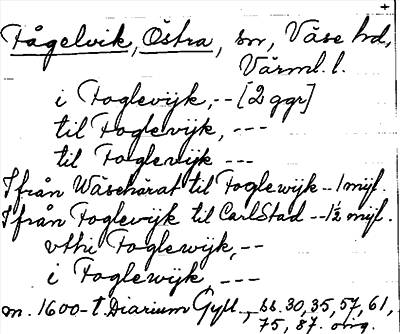 +
Fågelvik, Östra, sn, Väse hd,
Värml. l.
i Foglevijk, -- [2 ggr]
til Foglewijk, ---
til Foglevijk ---
Ifrån Wäsehärat til Foglewijk -- 1 mijl.
Ifrån Foglevijk til CarlStad -- 1½ mijl.
vthi Foglewijk, --
i Foglewijk ---
m. 1600-t. Diarium Gyll., ss. 30, 35, 57, 61,
75, 87. orig.